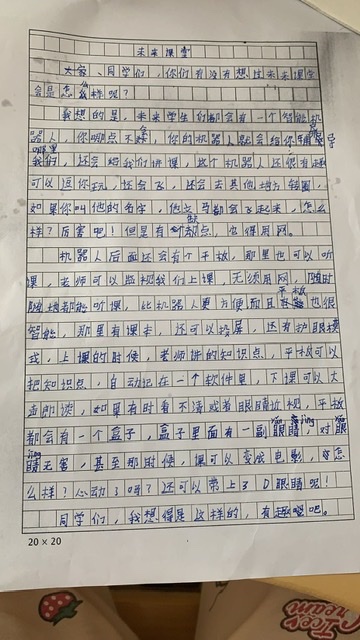 未来课堂
大家、同学们，你们有没有想过未来课堂
会是怎么样呢？
我想的是，未来学生们都会有一个智能机
器人，你哪点不会，你的机器人就会给你辅导
我们，还会给我们讲课，这个机器人还很有趣
可以逗你玩，还会飞，还会去其他地方转圈，
如果你叫他的名字，他立马都会飞起来，怎么
样？厉害吧！但是有缺点，也得用网。
机器人后面还会有个平板，那里也可以听
课，老师可以监视我们上课，无须用网，随时
随地都能听课，比机器人更方便而且平板也很
智能，那里有课本，还可以投屏，还有动眼模
式，上课的时候，老师讲的知识点，平板可以
把知识点，自动记在一个软件里，下课可以大
声朗读，如果有时看不清或者眼睛近视，平板
都会有一个盒子，盒子里面有一副眼睛，对眼
睛无害，甚至那时候，课可以变成电影，
么样？心动了吗？还可以带上3D眼睛呢！
同学们，我想得是这样的，有趣吧。
20×20
Ices
ream